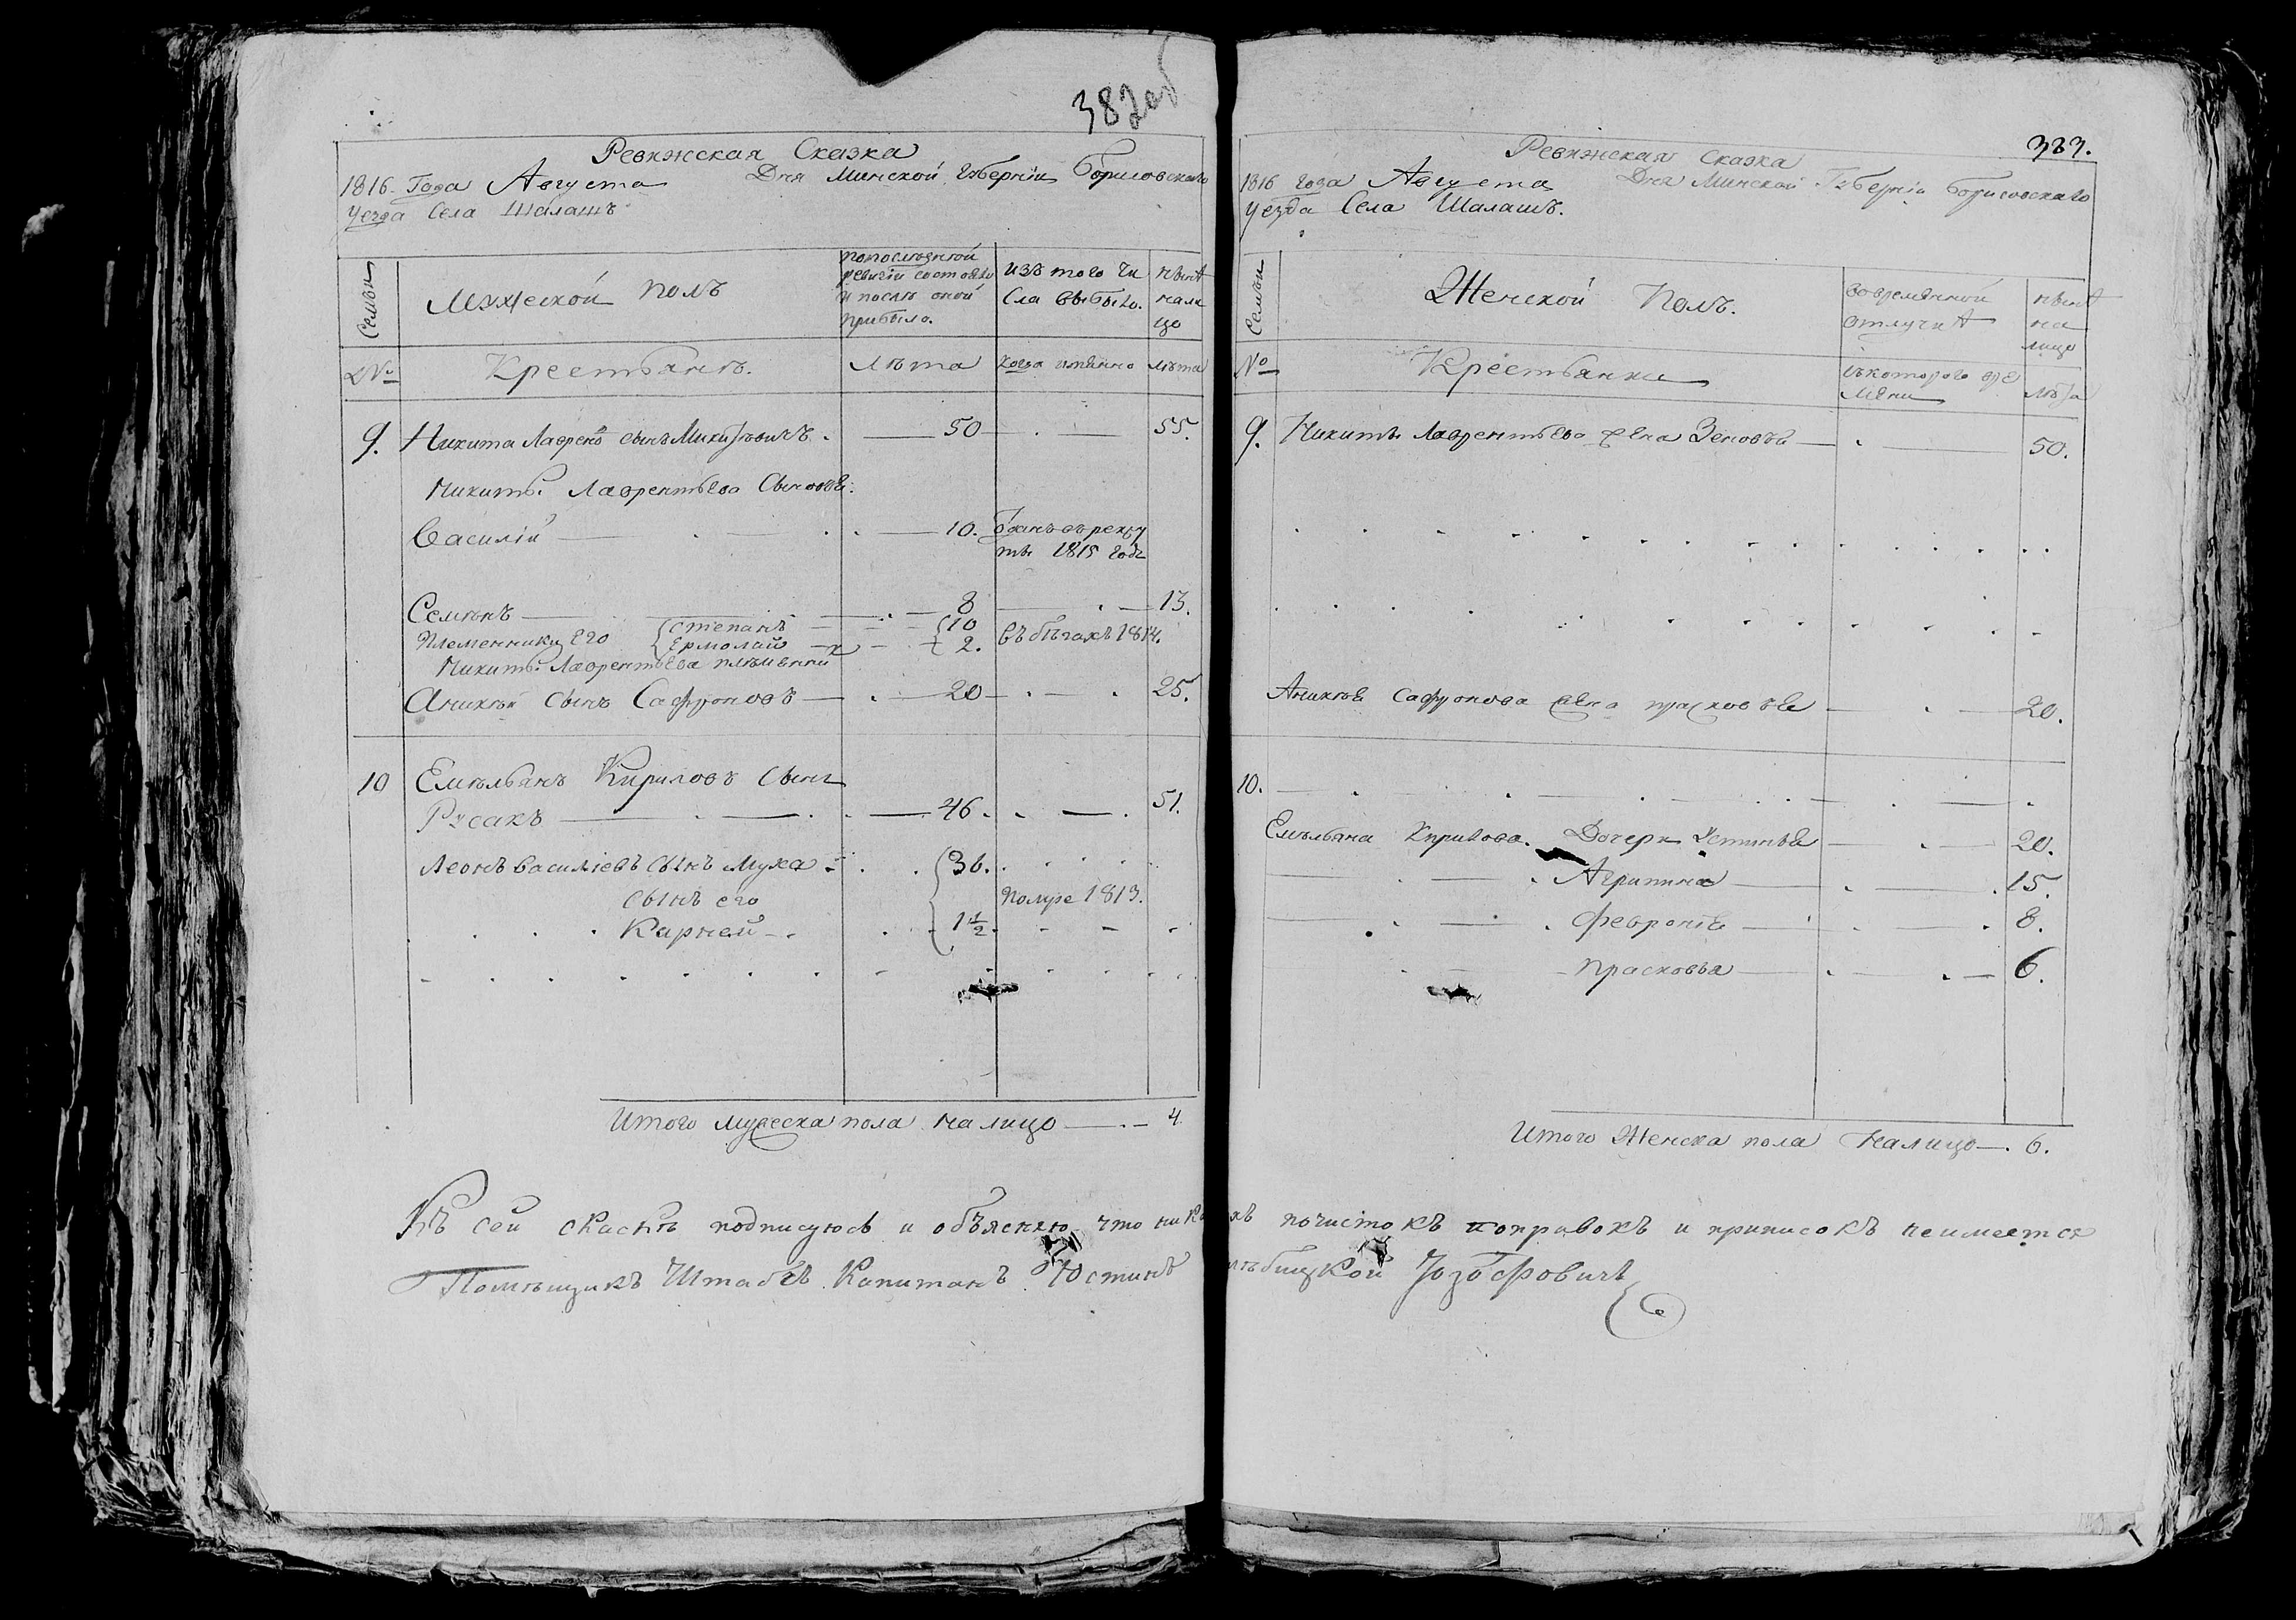 382об
Ревижская Сказка
1816 Года Августа Дня Минской Губерніи Борисовскаго
уезда Села Шалашъ
Семьи
Мужеской Полъ
попоследней
ревизіи состояло
и после оной
прибыло.
изъ того чи
сла выбыло.
ныне
нали
цо
№
Крестьянъ.
Лѣта
когда имянно
лѣта
9. Никита Лаврен сынъ 50 55.
Никиты Лаврентьева Сыновья.
Василій 10. Зданъ въ рекру
ты 1815 году
Семѣнъ 8 13.
Племенники его Степанъ 10 въ бѣгахъ 1814.
Ермолай 2.
Никиты Лаврентьева племянни
Аникѣй Сынъ Сафроновъ 20 25.
10 Емельянъ Кириловъ Сынъ
Русакъ 46. 51.
Леонъ Василіевъ Сынъ Муха 36.
Сынъ его помре 1813.
Карней 1 1/2
Итого мужеска пола налицо 4
383.
Ревижская Сказка
1816 года Августа Дня Минской Губерніи Борисовскаго
уезда Села Шалашъ.
Семьи
Женской Полъ.
во времянной
отлучке
ныне
на
лицо
№
Крестьянки
съ котораго вре
мени
лѣта
9. Никиты Лаврентьева жена Зеновья 50.
Аникѣя Сафронова жена прасковъя 20.
10.
Емельяна Кирилова. Дочери Устинья 20.
Агрипина 15.
Февронія 8.
Прасковья 6.
Итого Женска пола налицо 6.
Къ сей скаскѣ подписуюсь и объясняю что никакихъ почистокъ поправокъ и приписокъ неимеется
Помѣщикъ Штабсъ Капитанъ Юстинъ Іозофовичъ